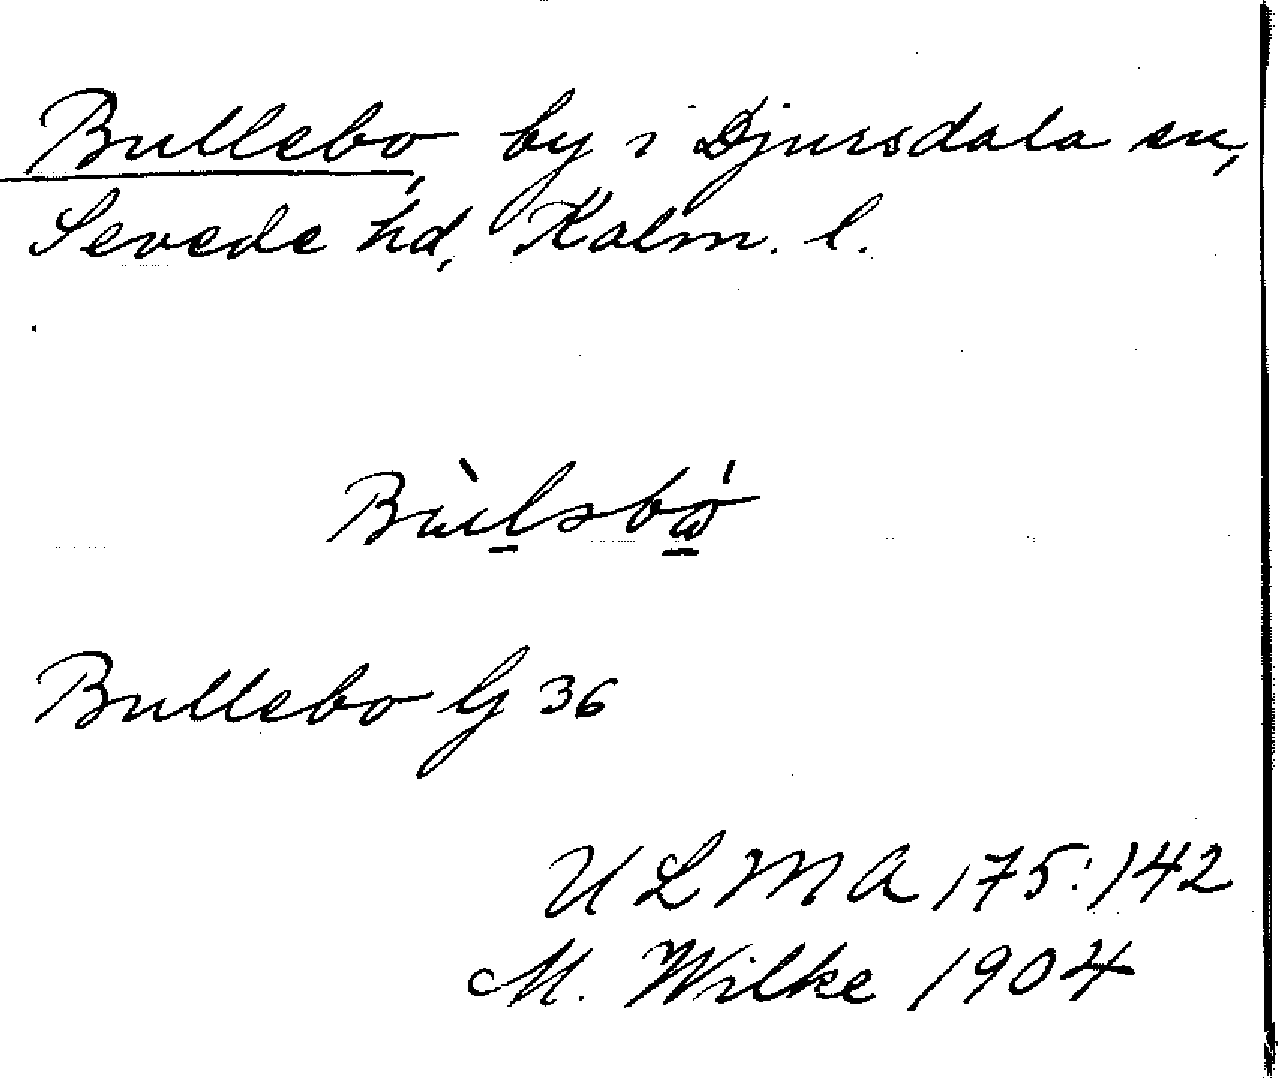 Bullebo, by i Djursdala sn,
Sevede hd, Kalm. l.
Bullebo G 36
U L M A 175:142
M. Wilke 1904